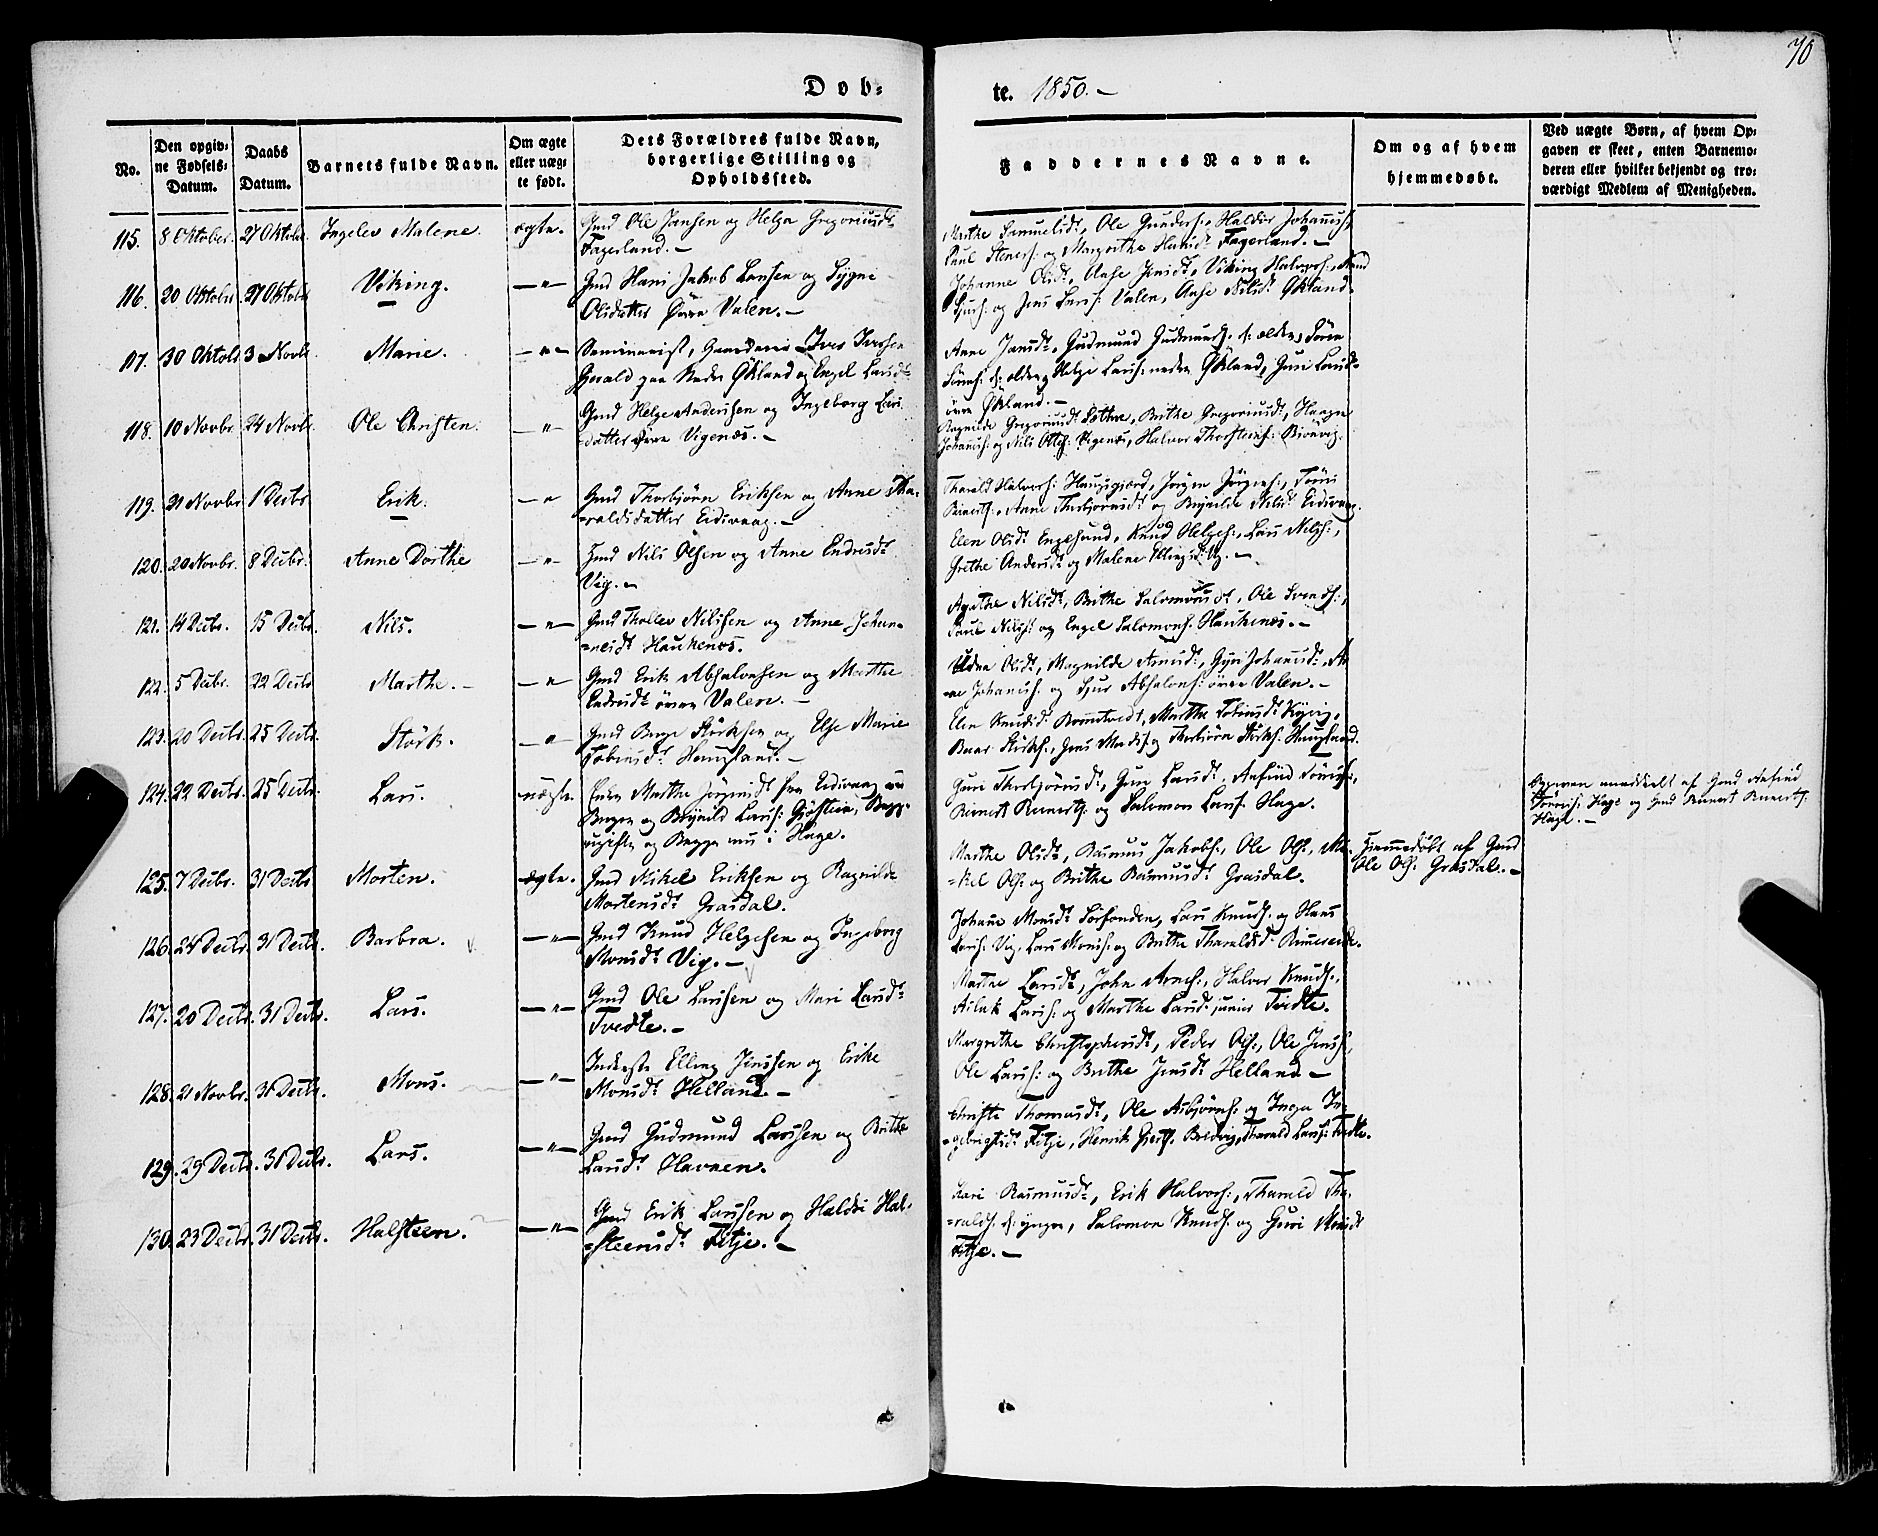 70
Døb-
te. 1850.-
No.
Den opgiv-
ne Fødsels-
Datum.
Daabs
Datum.
Barnets fulde Navn.
Om ægte
eller uæg-
te født.
Dets Forældres fulde Navn,
borgerlige Stilling og
Opholdssted.
Faddernes Navne.
Om og af hvem
hjemmedøbt.
Ved uægte Børn, af hvem Op-
gaven er skeet, enten Barnemo-
deren eller hvilket bekjendt og tro-
værdigt Medlem af Menigheden.
115. 8 Oktober. 27 Oktobr. Ingelev Malene. ægte. Gmd Ole Jansen og Helga Gregoriusdt
Fagerland.-
Marthe Samuelsdt, Ole Gunders:, Johannes:,
Paul Steners: og Margrethe Hansdt Fagerland.-
116. 20 Oktobr 27 Oktobr Viking. -"- Gmd Hans Jakob Larsen og Sygni
Olsdatter Øvre Valen.-
Johanne Olsdt, Aase Jensdt, Viking Halvors:,
Sjurs: og Jens Lars: Valen, Aase Nilsdt Økland.
117. 30 Oktobr 3 Novbr. Marie. -"- Seminarist, Gaardeier Iver Iversen
paa Nedre Økland og Engel Larsdt
Anne Jansdt, Gudmund Gudmunds. d: ældre, Sørn
d: ældre, Helge Lars: nedre Økland, Guri Larsdt
øvre Økland.-
118. 10 Novbr. 24 Novbr. Ole Christen. -"- Gmd Helge Andersen og Ingeborg Lars
datter Øvre Vigenæs.-
Ragnilde Gregoriusdt, Brithe Gregoriusdt, Haagen
Johannes: og Nils Vigenæs, Halvor Thorsteins:
119. 21 Novbr 1 Decbr Erik. -"- Gmd Thorbjørn Eriksen og Anne Tha-
=raldsdatter Eidsvaag.-
Tharald Halvors: Haugsgjerd, Jørgen Jørgens:,
Anne Thorbjørnsdt og Brynilde Nilsdt Eidsvaag.
120. 20 Novbr. 8 Decbr. Anne Dorthe -"- Gmd Nils Olsen og Anne Endresdt
Vig.-
Elen Olsdt Engesund, Knud Helges:, Lars Nils:,
Grethe Andersdt og Malene Ellingsdt Vig.-
121. 14 Decbr. 15 Decbr. Nils. -"- Gmd Thollev Nilssen og Anne Johan-
=nesdt Haukenæs.
Agathe Nilsdt, Brithe Salomonsdt, Ole Svends:,
Paul Nils: og Engel Salomons. Haukenæs.-
122. 5 Decbr. 22 Decbr Marthe.- -"- Gmd Erik Absalonsen og Marthe
Endresdt øvre Valen.-
Olsdt, Magnilde Arnesdt, Gyri Johansdt, Ar-
=ne Johannes: og Sjur Absalons: øvre Valen.-
123. 20 Decbr. 25 Decbr. Størk. -"- Gmd Størksen og Else Marie
Tobiasdt Haugland.-
Elen Knudsdt, Marthe Tobiasdt
Størks:, Jens Mads: og Thorbjørn Størks: Haugland.
124. 22 Decbr. 25 Decbr. Lars. uægte. Enke Marthe Jørgensdt fra Eidsvaag nu
og Brynild Lars:
ugifte og Begge nu i Hage.
Guri Thorbjørnsdt, Guri Larsdt, Anfind Tønnes:,
Reinert Reinerts: og Salomon Lars: Hage.
Opgaven meddeelt af Gmd Anfind
Tønnes: Hage og Gmd Reinert Reinerts:
Hage.-
125. 7 Decbr. 31 Decbr Morten. ægte. Gmd Mikel Eriksen og Ragnilde
Mortensdt Grasdal.
Marthe Olsdt, Rasmus Jakobs:, Ole Ols:, Mi-
=kel Ols: og Brithe Rasmusdt Grasdal.
Hjemmedøbt af Gmd
Ole Ols: Grasdal.-
126. 24 Decbr. 31 Decbr. Barbra. -"- Gmd Knud Helgesen og Ingeborg
Monsdt Vig.-
Johanne Monsdt Sørfonden, Lars Knuds: og Hans
Lars: Vig, Lars Mons: og Brithe Tharaldsdt
127. 20 Decbr. 31 Decbr. Lars. -"- Gmd Ole Larssen og Mari Larsdt
Tvedte.-
Larsdt, John Arnes:, Halvor Knuds:,
Lars: og Marthe Larsdt junior Tvedte.
128. 21 Novbr. 31 Decbr. Mons. -"- Inderste Elling Jenssen og Erike
Monsdt Helland.-
Margrethe Christophersdt, Peder Ols:, Ole Jens:,
Ole Lars: og Brithe Jensdt Helland.-
129. 29 Decbr. 31 Decbr. Lars. -"- Gmd Gudmund Larssen og Brithe
Larsdt Havnen.
Christe Thomasdt, Ole Asbjørns: og Inga In-
=gebrigtsdt Fitje, Henrik Bredvig, Tharald Lars: Tvedte.
130. 23 Decbr. 31 Decbr. Halsteen. -"- Gmd Erik Larssen og Haldri Hal-
=steensdt Fitje.-
Kari Rasmusdt, Erik Halvors:, Tharald Tha-
=ralds: d: yngre, Salomon Knuds: og Guri Monsdt
Fitje.-